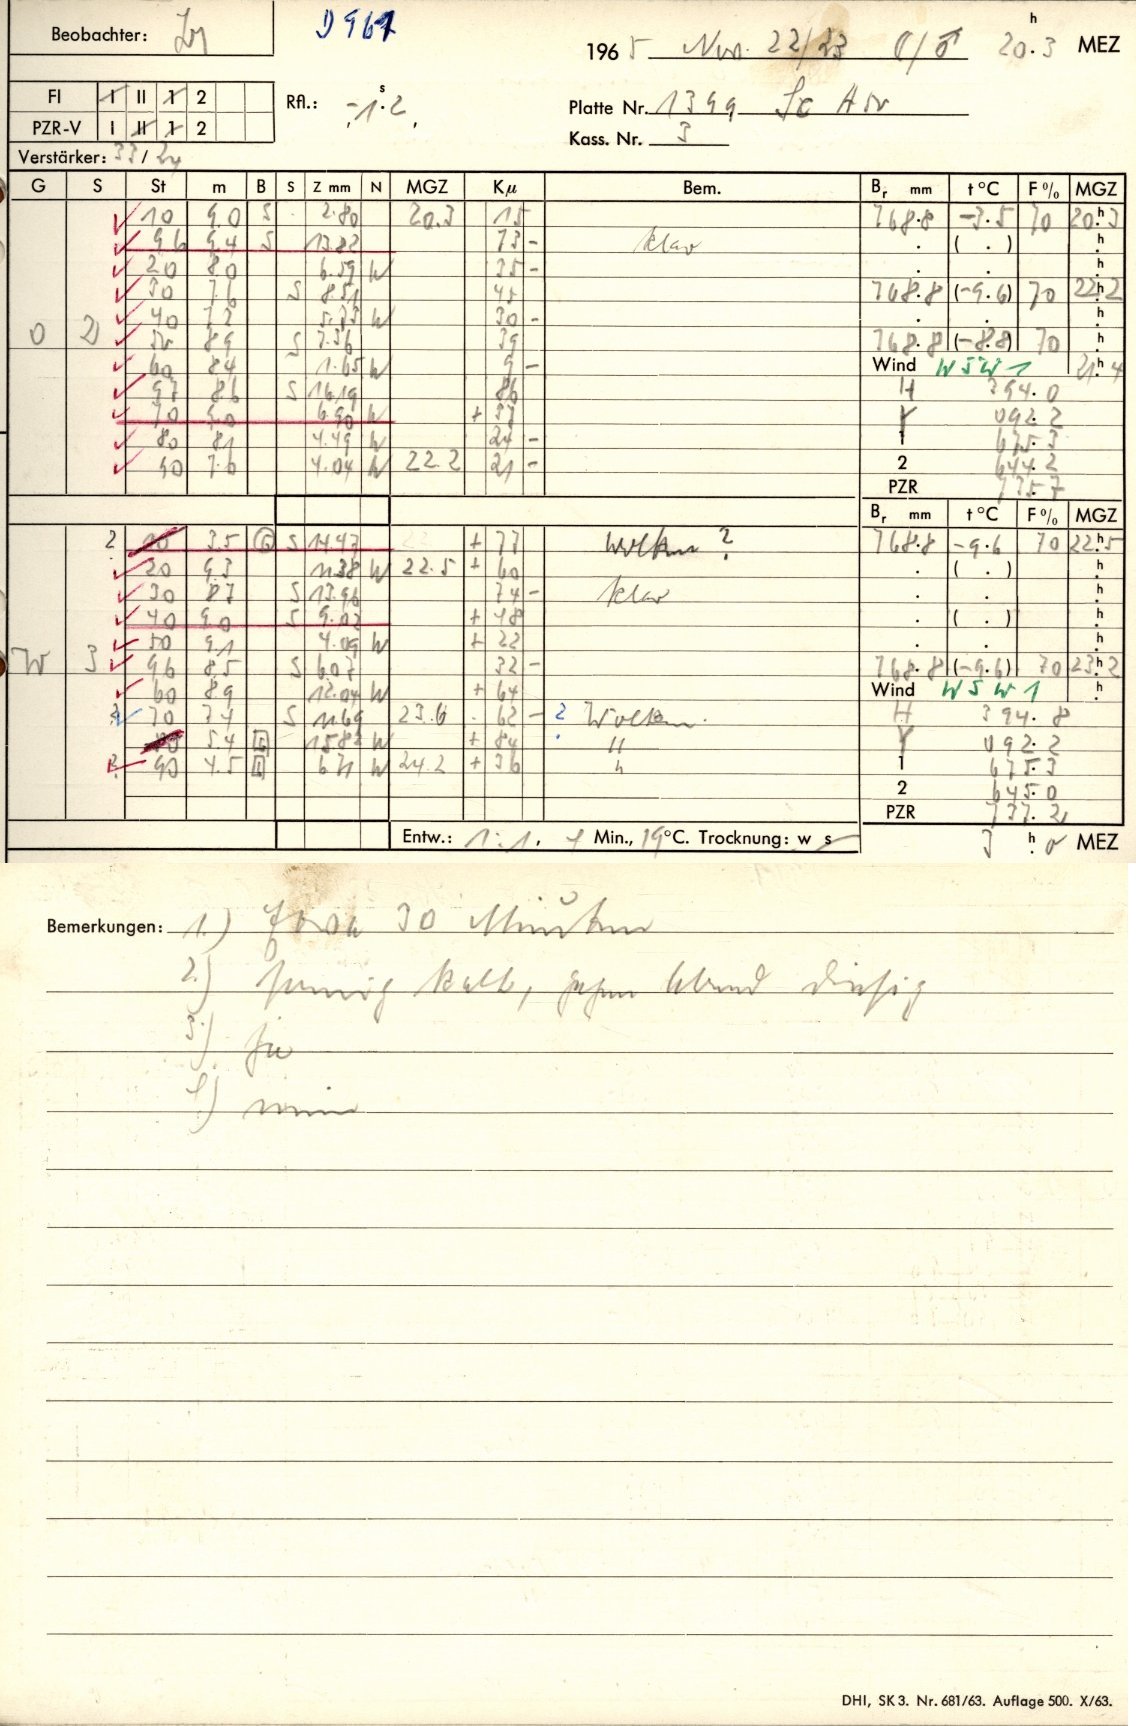 Beobachter:
D 967
1965 Nov. 22/23 20.3 h MEZ
FI I II 1 2
Rfl.: -1.2 s
Platte Nr. 1399
PZR-V I II 1 2
Kass. Nr. 3
Verstärker: 33/
G S St m B S Z mm N MGZ Kμ Bem. Br mm t °C F % MGZ
10 9.0 S 2.80 20.3 15 768.8 -3.5 70 20.3 h
96 9.4 S 13.82 73 - klar ( . ) h
20 8.0 6.59 W 35 - h
30 7.6 S 8.51 45 768.8 (-9.6) 70 22.2 h
40 7.2 5.73 W 30 - h
O 2 50 8.9 S 7.36 39 768.8 (-8.8) 70 h
60 8.4 1.65 W 9 - Wind WSW 1 21.4 h
97 8.6 S 16.19 86 H 394.0
70 9.0 6.90 W + 37 Y 092.2
80 8.1 4.49 W 24 - 1 675.3
90 7.6 4.04 W 22.2 21 - 2 644.2
PZR
Br mm t °C F % MGZ
2 10 3.5 G S 14.47 + 77 Wolken ? 768.8 -9.6 70 22.5 h
20 9.3 11.38 W 22.5 + 60 ( . ) h
30 8.7 S 13.96 74 - klar h
40 9.0 S 9.02 + 48 ( . ) h
50 9.1 4.09 W + 22 h
W 3 96 8.5 S 6.07 32 - 768.8 (-9.6) 70 23.2 h
60 8.9 12.04 W + 64 Wind WSW 1 h
70 7.4 S 11.69 23.6 62 - ? Wolken. H 394.8
5.4 15.82 W + 84 " Y 092.2
90 4.5 6.71 W 24.2 + 36 " 1 675.3
2 645.0
PZR 737.2
Entw.: 1:1, 4 Min., 19 °C. Trocknung: w s
3 h .0 MEZ
Bemerkungen: 1.) Etwa 30 Minuten
2.) sonnig kalt, gegen Abend diesig
3.) ja
4.) nein
DHI, SK 3. Nr. 681/63. Auflage 500. X/63.